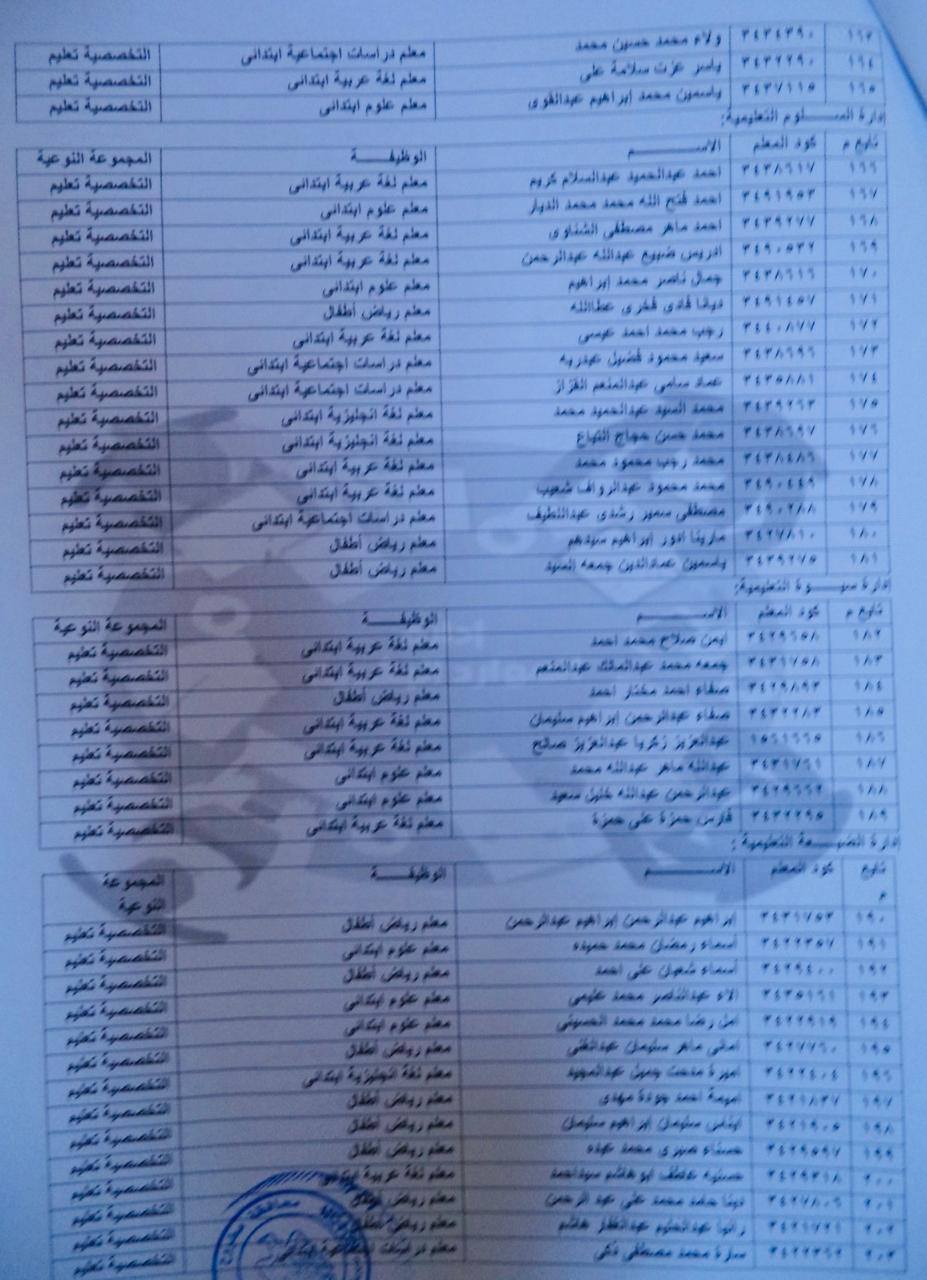 ١٦٣ ٣٤٣٤٣٩٠ ولاء محمد حسين محمد معلم دراسات اجتماعية ابتدائى التخصصية تعليم
١٦٤ ٣٤٣٢٢٩٠ ياسر عزت سلامة على معلم لغة عربية ابتدائى التخصصية تعليم
١٦٥ ٣٤٣٧١١٥ ياسمين محمد إبراهيم عبدالقوى معلم علوم ابتدائى التخصصية تعليم
إدارة الســلوم التعليمية:
تابع م كود المعلم الاســـم الوظيفــة المجموعة النوعية
١٦٦ ٣٤٣٨٦١٧ احمد عبدالحميد عبدالسلام كريم معلم لغة عربية ابتدائى التخصصية تعليم
١٦٧ ٣٤٩١٩٥٣ احمد فتح الله محمد محمد الديار معلم علوم ابتدائى التخصصية تعليم
١٦٨ ٣٤٣٩٢٧٧ احمد ماهر مصطفى الشناوى معلم لغة عربية ابتدائى التخصصية تعليم
١٦٩ ٣٤٩٠٥٣٢ ادريس ضبيع عبدالله عبدالرحمن معلم لغة عربية ابتدائى التخصصية تعليم
١٧٠ ٣٤٣٨٦١٦ جمال ناصر محمد إبراهيم معلم علوم ابتدائى التخصصية تعليم
١٧١ ٣٤٩١٤٥٧ ديانا فادى فخرى عطاالله معلم رياض أطفال التخصصية تعليم
١٧٢ ٣٤٤٠٨٧٧ رجب محمد احمد عيسى معلم لغة عربية ابتدائى التخصصية تعليم
١٧٣ ٣٤٣٨٦٩٦ سعيد محمود فضيل عبدربه معلم دراسات اجتماعية ابتدائى التخصصية تعليم
١٧٤ ٣٤٣٥٨٨١ عماد سامى عبدالمنعم القزاز معلم دراسات اجتماعية ابتدائى التخصصية تعليم
١٧٥ ٣٤٣٩٢٦٣ محمد السيد عبدالحميد محمد معلم لغة انجليزية ابتدائى التخصصية تعليم
١٧٦ ٣٤٣٨٦٩٧ محمد حسن حجاج التباع معلم لغة انجليزية ابتدائى التخصصية تعليم
١٧٧ ٣٤٣٨٤٨٦ محمد رجب محمود محمد معلم لغة عربية ابتدائى التخصصية تعليم
١٧٨ ٣٤٩٠٤٤٩ محمد محمود عبدالرواف شعيب معلم لغة عربية ابتدائى التخصصية تعليم
١٧٩ ٣٤٩٠٢٨٨ مصطفى سمير رشدى عبداللطيف معلم دراسات اجتماعية ابتدائى التخصصية تعليم
١٨٠ ٣٤٢٧٨١٠ مارينا ادور إبراهيم سيدهم معلم رياض أطفال التخصصية تعليم
١٨١ ٣٤٣٩٢٧٥ ياسمين عمادالدين جمعه السيد معلم رياض أطفال التخصصية تعليم
إدارة سيــوة التعليمية:
تابع م كود المعلم الاســـم الوظيفــة المجموعة النوعية
١٨٢ ٣٤٢٩٦٥٨ ايمن صلاح محمد احمد معلم لغة عربية ابتدائى التخصصية تعليم
١٨٣ ٣٤٣١٧٥٨ جمعه محمد عبدالمالك عبدالمنعم معلم لغة عربية ابتدائى التخصصية تعليم
١٨٤ ٣٤٢٩٨٩٣ صفاء احمد مختار احمد معلم رياض أطفال التخصصية تعليم
١٨٥ ٣٤٣٢٢٨٣ صفاء عبدالرحمن إبراهيم سليمان معلم لغة عربية ابتدائى التخصصية تعليم
١٨٦ ١٥٥١٦٦٥ عبدالعزيز زكريا عبدالعزيز صالح معلم لغة عربية ابتدائى التخصصية تعليم
١٨٧ ٣٤٣١٧٦١ عبدالله ماهر عبدالله محمد معلم علوم ابتدائى التخصصية تعليم
١٨٨ ٣٤٢٩٦٦٢ عبدالرحمن عبدالله خليل سعيد معلم علوم ابتدائى التخصصية تعليم
١٨٩ ٣٤٣٢٢٩٥ فارس حمزة على حمزة معلم لغة عربية ابتدائى التخصصية تعليم
إدارة الضبــعة التعليمية :
تابع م كود المعلم الاســـم الوظيفــة المجموعة النوعية
١٩٠ ٣٤٣١٧٥٣ إبراهيم عبدالرحمن إبراهيم عبدالرحمن معلم رياض أطفال التخصصية تعليم
١٩١ ٣٤٢٢٣٥٧ أسماء رمضان محمد حميده معلم علوم ابتدائى التخصصية تعليم
١٩٢ ٣٤٢٩٤٠٠ أسماء شعبان على احمد معلم رياض أطفال التخصصية تعليم
١٩٣ ٣٤٣٥١٦١ الاء عبدالناصر محمد معلم علوم ابتدائى التخصصية تعليم
١٩٤ ٣٤٢٢٩١٩ امل رضا محمد محمد الحسينى معلم علوم ابتدائى التخصصية تعليم
١٩٥ ٣٤٢٧٧٦٠ امانى ماهر سليمان عبدالغنى معلم رياض أطفال التخصصية تعليم
١٩٦ ٣٤٢٢٤٠٤ اميرة مدحت عبدالمجيد معلم لغة انجليزية ابتدائى التخصصية تعليم
١٩٧ ٣٤٢١٨٣٧ اميمة احمد جودة مهدى معلم رياض أطفال التخصصية تعليم
١٩٨ ٣٤٢١٩٠٥ ايناس سليمان إبراهيم سليمان معلم رياض أطفال التخصصية تعليم
١٩٩ ٣٤٢٩٥٩٧ حسناء صبرى محمد عبده معلم رياض أطفال التخصصية تعليم
٢٠٠ ٣٤٢٩٣١٨ حسنيه عاطف ابوهاشم سيداحمد معلم لغة عربية ابتدائى التخصصية تعليم
٢٠١ ٣٤٢٧٨٠٦ دينا حامد محمد على عبد الرحمن معلم رياض أطفال التخصصية تعليم
٢٠٢ ٣٤٢١٧٢١ رانيا عبدالحليم عبدالغفار هاشم معلم رياض أطفال التخصصية تعليم
٢٠٣ ٣٤٢٢٣٦٢ سارة محمد مصطفى ذكى معلم دراسات اجتماعية ابتدائى التخصصية تعليم